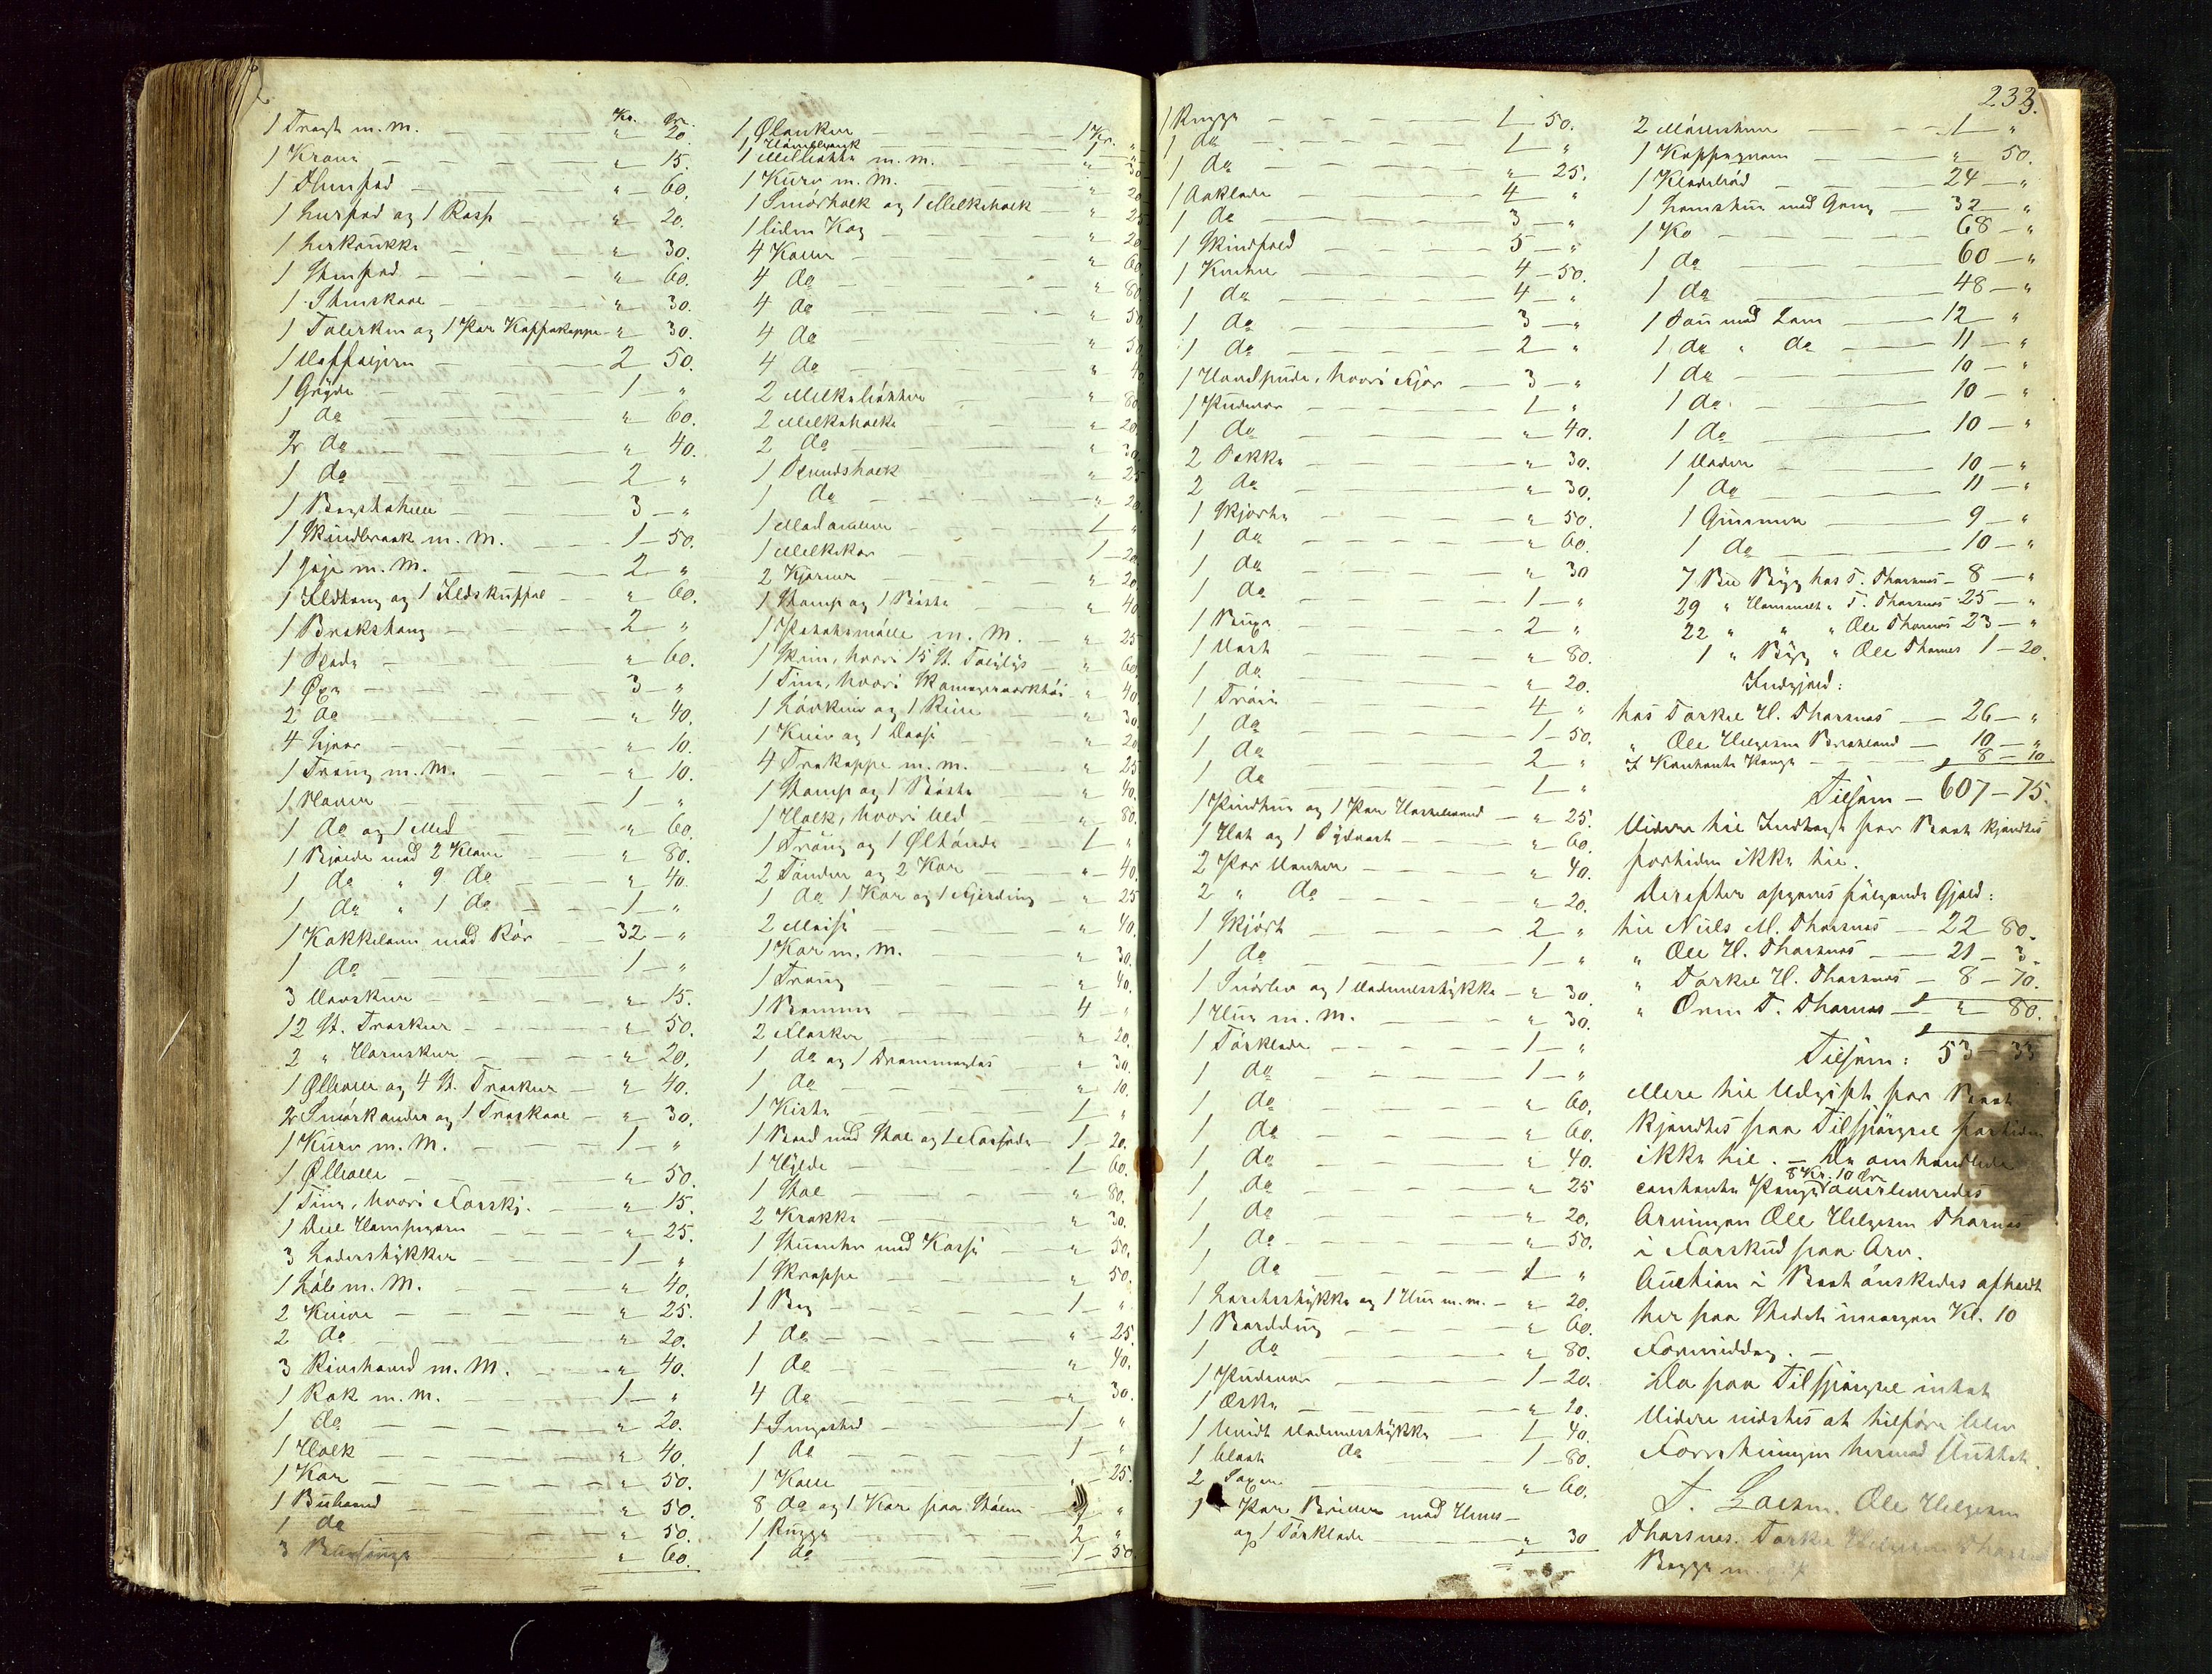 Kr. Ør.
1 Tragt m. m. — " 20.
1 Krane — " 15.
1 Steenfad — " 60.
1 Leerfad og 1 — " 20.
1 Leerkrukke — " 30.
1 Steenfad — " 60.
1 Steenskaal — " 30.
1 Talerken og 1 Par Kaffekopper — " 30.
1 Vaffeljern — 2 50.
1 Gryde — 1 "
1 do — " 60.
2 do — " 40.
1 do — 2 "
1 Bagstehelle — 3 "
1 m. m. — 1 50.
1 m. m. — 2 "
1 Ildtang og 1 Ildskuffel — " 60.
1 Brækstang — 2 "
1 — " 60.
1 Øxe — 3 "
2 do — " 40.
4 Ljaar — " 10.
1 Traug m. m. — " 10.
1 — 1 "
1 do og 1 — " 60.
1 Bjælde med 2 Klave — " 80.
1 do " 9 do — " 40.
1 do " 1 do — 1 "
1 Kakkelovn med Rør — 32 "
1 do — 1 "
3 — " 15.
12 St. Træskeer — " 50.
2 " Hornskeer — " 20.
1 Ølbolle og 4 St. Træskeer — " 40.
2 Smørkander og 1 Træskaal — " 30.
1 Kurv m. m. — 1 "
1 Ølbolle — " 50.
1 Tine, hvori Forskj. — " 15.
1 Deel Hampegarn — " 25.
3 Læderstykker — 1 "
1 m. m. — " 40.
2 Knive — " 25.
2 do — " 20.
3 m. m. — " 40.
1 Rok m. m. — 1 "
1 do — " 20.
1 Holk — " 40.
1 Kar — " 50.
1 — " 50.
1 do — " 50.
3 — " 60.
1 Ølanker — 1 Kr. "
1 Melbøtte m. m. — " 30
1 Kurv m. m. — " 20
1 Smørholk og 1 Melkeholk — " 25
1 liden Kag — " 20
4 Koller — " 60
4 do — " 80
4 do — " 50
4 do — " 50
4 do — " 40
2 Melkebøtter — " 80
2 Melkeholke — " 20.
2 do — " 30
1 Spundsholk — " 25
1 do — " 20.
1 — 1 "
1 Melkekar — 1 20
2 Kjørner — " 20
1 Stamp og 1 Bøtte — " 40
1 m. m. — " 25
1 Skrin, hvori 15 St. Talglys — " 60.
1 Tine, hvori — " 40
1 Løvkniv og 1 — " 30
1 Kniv og 1 — " 20
4 Trækopper m. m. — " 25
1 Stamp og 1 Bøtte — " 40.
1 Holk, hvori Uld — " 80.
1 Traug og 1 Øltønde — 1 "
2 Tønder og 2 Kar — " 40.
1 do 1 Kar og 1 Fjerding — " 25
2 Meiser — " 40.
1 Kar m. m. — " 30.
1 Traug — " 40.
1 Bomme — 4 "
2 Flasker — " 20.
1 do og 1 Drammeglas — " 30.
1 do — " 10.
1 Kiste — 1 "
1 Bord med Stol og 1 — 1 20.
1 Hylde — 1 60.
1 Stol — " 80.
2 Krakke — " 30.
1 Stueuhr med Kasse — " 50.
1 Skreppe — " 50.
1 Bog — 1 "
1 do — " 25.
1 do — " 40.
4 do — " 30.
1 Sengested — 1 "
1 do — 1 "
1 Kolle — " 25.
8 do og 1 Kar paa Støllen — 2 "
1 Rugge — 2 "
1 do — 1 50.
233.
1 Rugge — 1 50.
1 do — 1 "
1 do — " 25.
1 Aaklæde — 4 "
1 do — 3 "
1 Skindfeld — 5 "
1 — 4 50.
1 do — 4 "
1 do — 3 "
1 do — 2 "
1 Hovedpude, hvori Fjær — 3 "
1 Pudevar — 1 "
1 do — " 40.
2 Sække — " 30.
2 do — " 30.
1 Skjorte — " 50.
1 do — " 60.
1 do — " 30
1 do — 1 "
1 Buxe — 2 "
1 Vest — " 80.
1 do — " 20.
1 Trøie — 4 "
1 do — 1 50.
1 do — 2 "
1 do — 1 "
1 Skindhue og 1 Par — " 25.
1 Hat og 1 Sydvest — " 60.
2 Par Vanter — " 40.
2 " do — " 20.
1 Skjørt — 2 "
1 do — 1 "
1 Snørliv og 1 Vadmelsstykke — " 30.
1 Hue m. m. — " 30.
1 Tørklæde — 1 "
1 do — 1 "
1 do — " 60.
1 do — " 60.
1 do — " 40.
1 do — " 25
1 do — " 20.
1 do — " 50.
1 do — 1 "
1 Lærredsstykke og 1 Hue m. m. — " 20.
1 Borddug — " 60.
1 do — " 80.
1 Pudevar — 1 20.
1 Æske — " 20.
1 hvidt Vadmelsstykke — 1 40.
1 blaat do — 1 80.
2 Saxer — " 60.
1 Par Briller med Huus
og 1 Tørklæde — " 30
2 — 1 "
1 Kaffe — " 50.
1 — 24 "
1 med Garn — 32 "
1 Ko — 68 "
1 do — 60 "
1 do — 48 "
1 Sau med Lam — 12 "
1 do " do — 11 "
1 do — 10 "
1 do — 10 "
1 do — 10 "
1 Væder — 10 "
1 do — 11 "
1 Gimmer — 9 "
1 do — 10 "
7 Byg hos T. Thorsnes — 8 "
29 " " T. Thorsnes 25 "
22 " " " Ole Thorsnes 23 "
1 " Byg " Ole Thorsnes 1 20.
Indgjæld:
hos Torkel H. Thorsnes — 26 "
" Ole Helgesen — 10 "
I Kontante Penge — 8 10
Tilsam — 607 — 75.
Videre til Indtægt for Boet kjendtes
fortiden ikke til.
Derefter opgaves følgende Gjæld:
til Niels M. Thorsnes — 22 80.
" Ole H. Thorsnes — 21 3.
" Torkel H. Thorsnes — 8 70.
" Orm T. Thorsnes — " 80.
Tilsam: 53 33
Mere til Udgift for Boet
kjendtes paa Tilspørgsel fortiden
ikke til. — De omhandlede
8 Kr. 10 Ør.
contante Penge overleveredes
Arvingen Ole Helgesen Thorsnes
i Forskud paa Arv.
Auction i Boet ønskedes afholdt
her paa Stedet imorgen Kl. 10
Formiddag. —
Da paa Tilspørgsel intet
Videre vidstes at tilføre blev
Forretningen hermed sluttet.
T. Ole Helgesen
Thorsnes. Torkel Helgesen Thorsnes